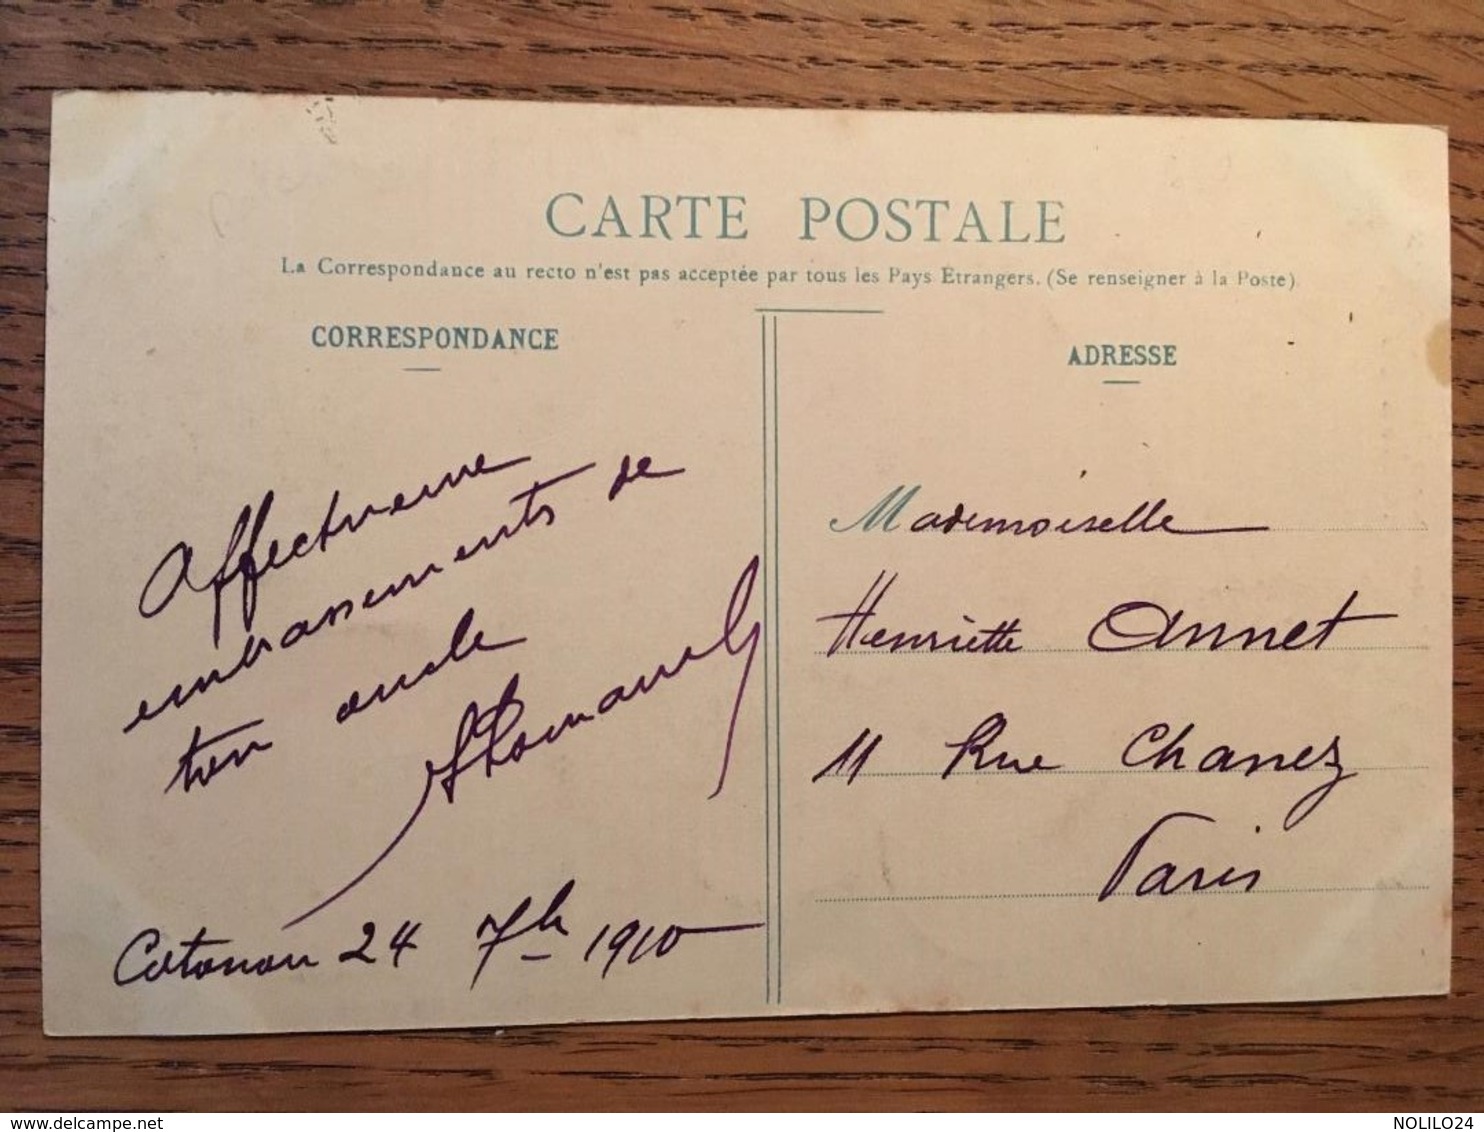 CARTE POSTALE
La Correspondance au recto n'est pas acceptée par tous les Pays Etrangers. (Se renseigner à la Poste)
CORRESPONDANCE
Affectueux
embrassements de
ton oncle
Cotonou 24 7bre 1910
ADRESSE
Mademoiselle
Henriette Annet
11 Rue Chanez
Paris
www.delcampe.net
NOLILO24